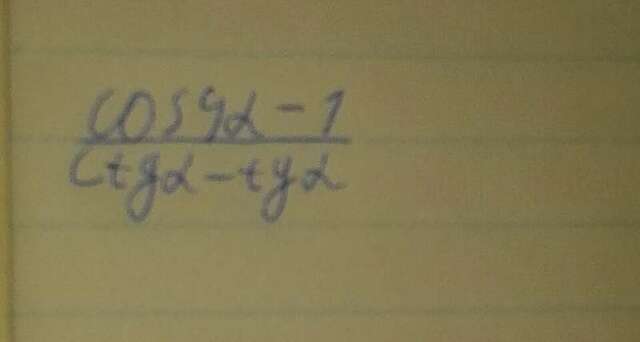 cos4α-1
ctgα-tgα